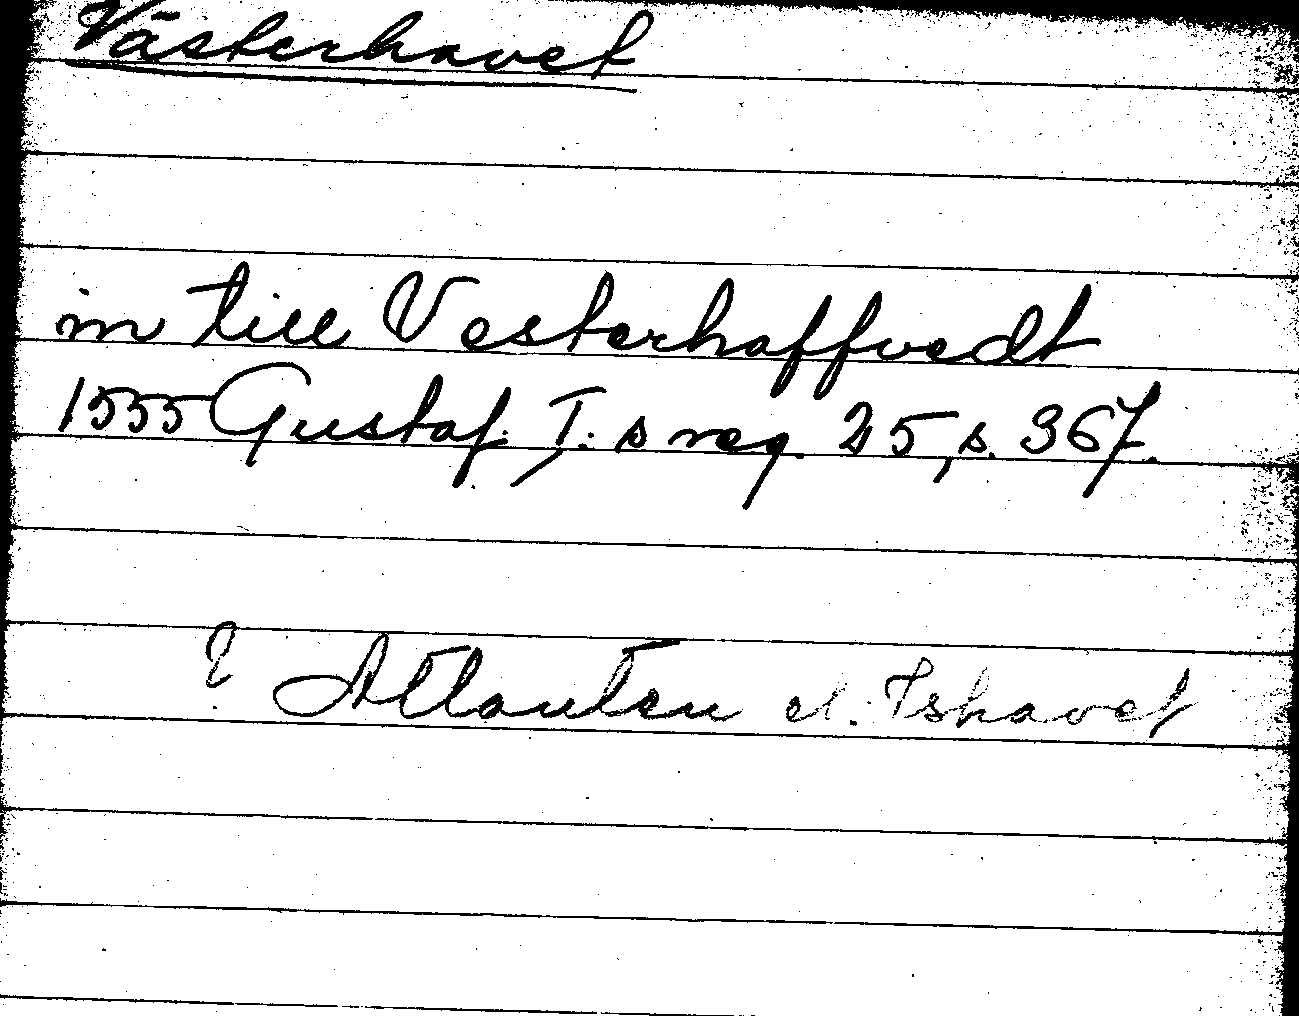 Västerhavet
in till Vesterhaffvedt
1555 Gustaf I:s reg. 25, s. 367.
? Atlanten el. Ishavet